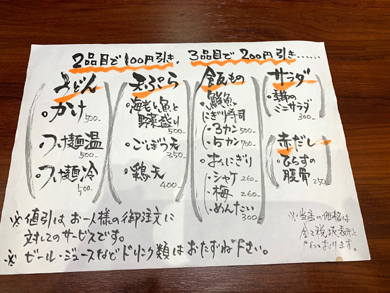 2品目で100円引き、3品目で200円引き……
うどん
・かけ 500-
・つけ麺温 500-
・つけ麺冷 500-
天ぷら
・海老と魚と
野菜盛り 500-
・ごぼう天 350
・鶏天 400-
飯もの
・鮮魚
にぎり寿司
・3カン 500-
・5カン 700-
・おにぎり
・シャケ 260-
・梅 260-
・めんたい 300-
サラダ
ミニサラダ 300-
赤だし
ひらすの
腹骨 250-
※値引はお一人様の御注文に
対してのサービスです。
※ビール・ジュースなどドリンク類はおたずね下さい。
※当店の価格は
全て税込表示と
なっております。